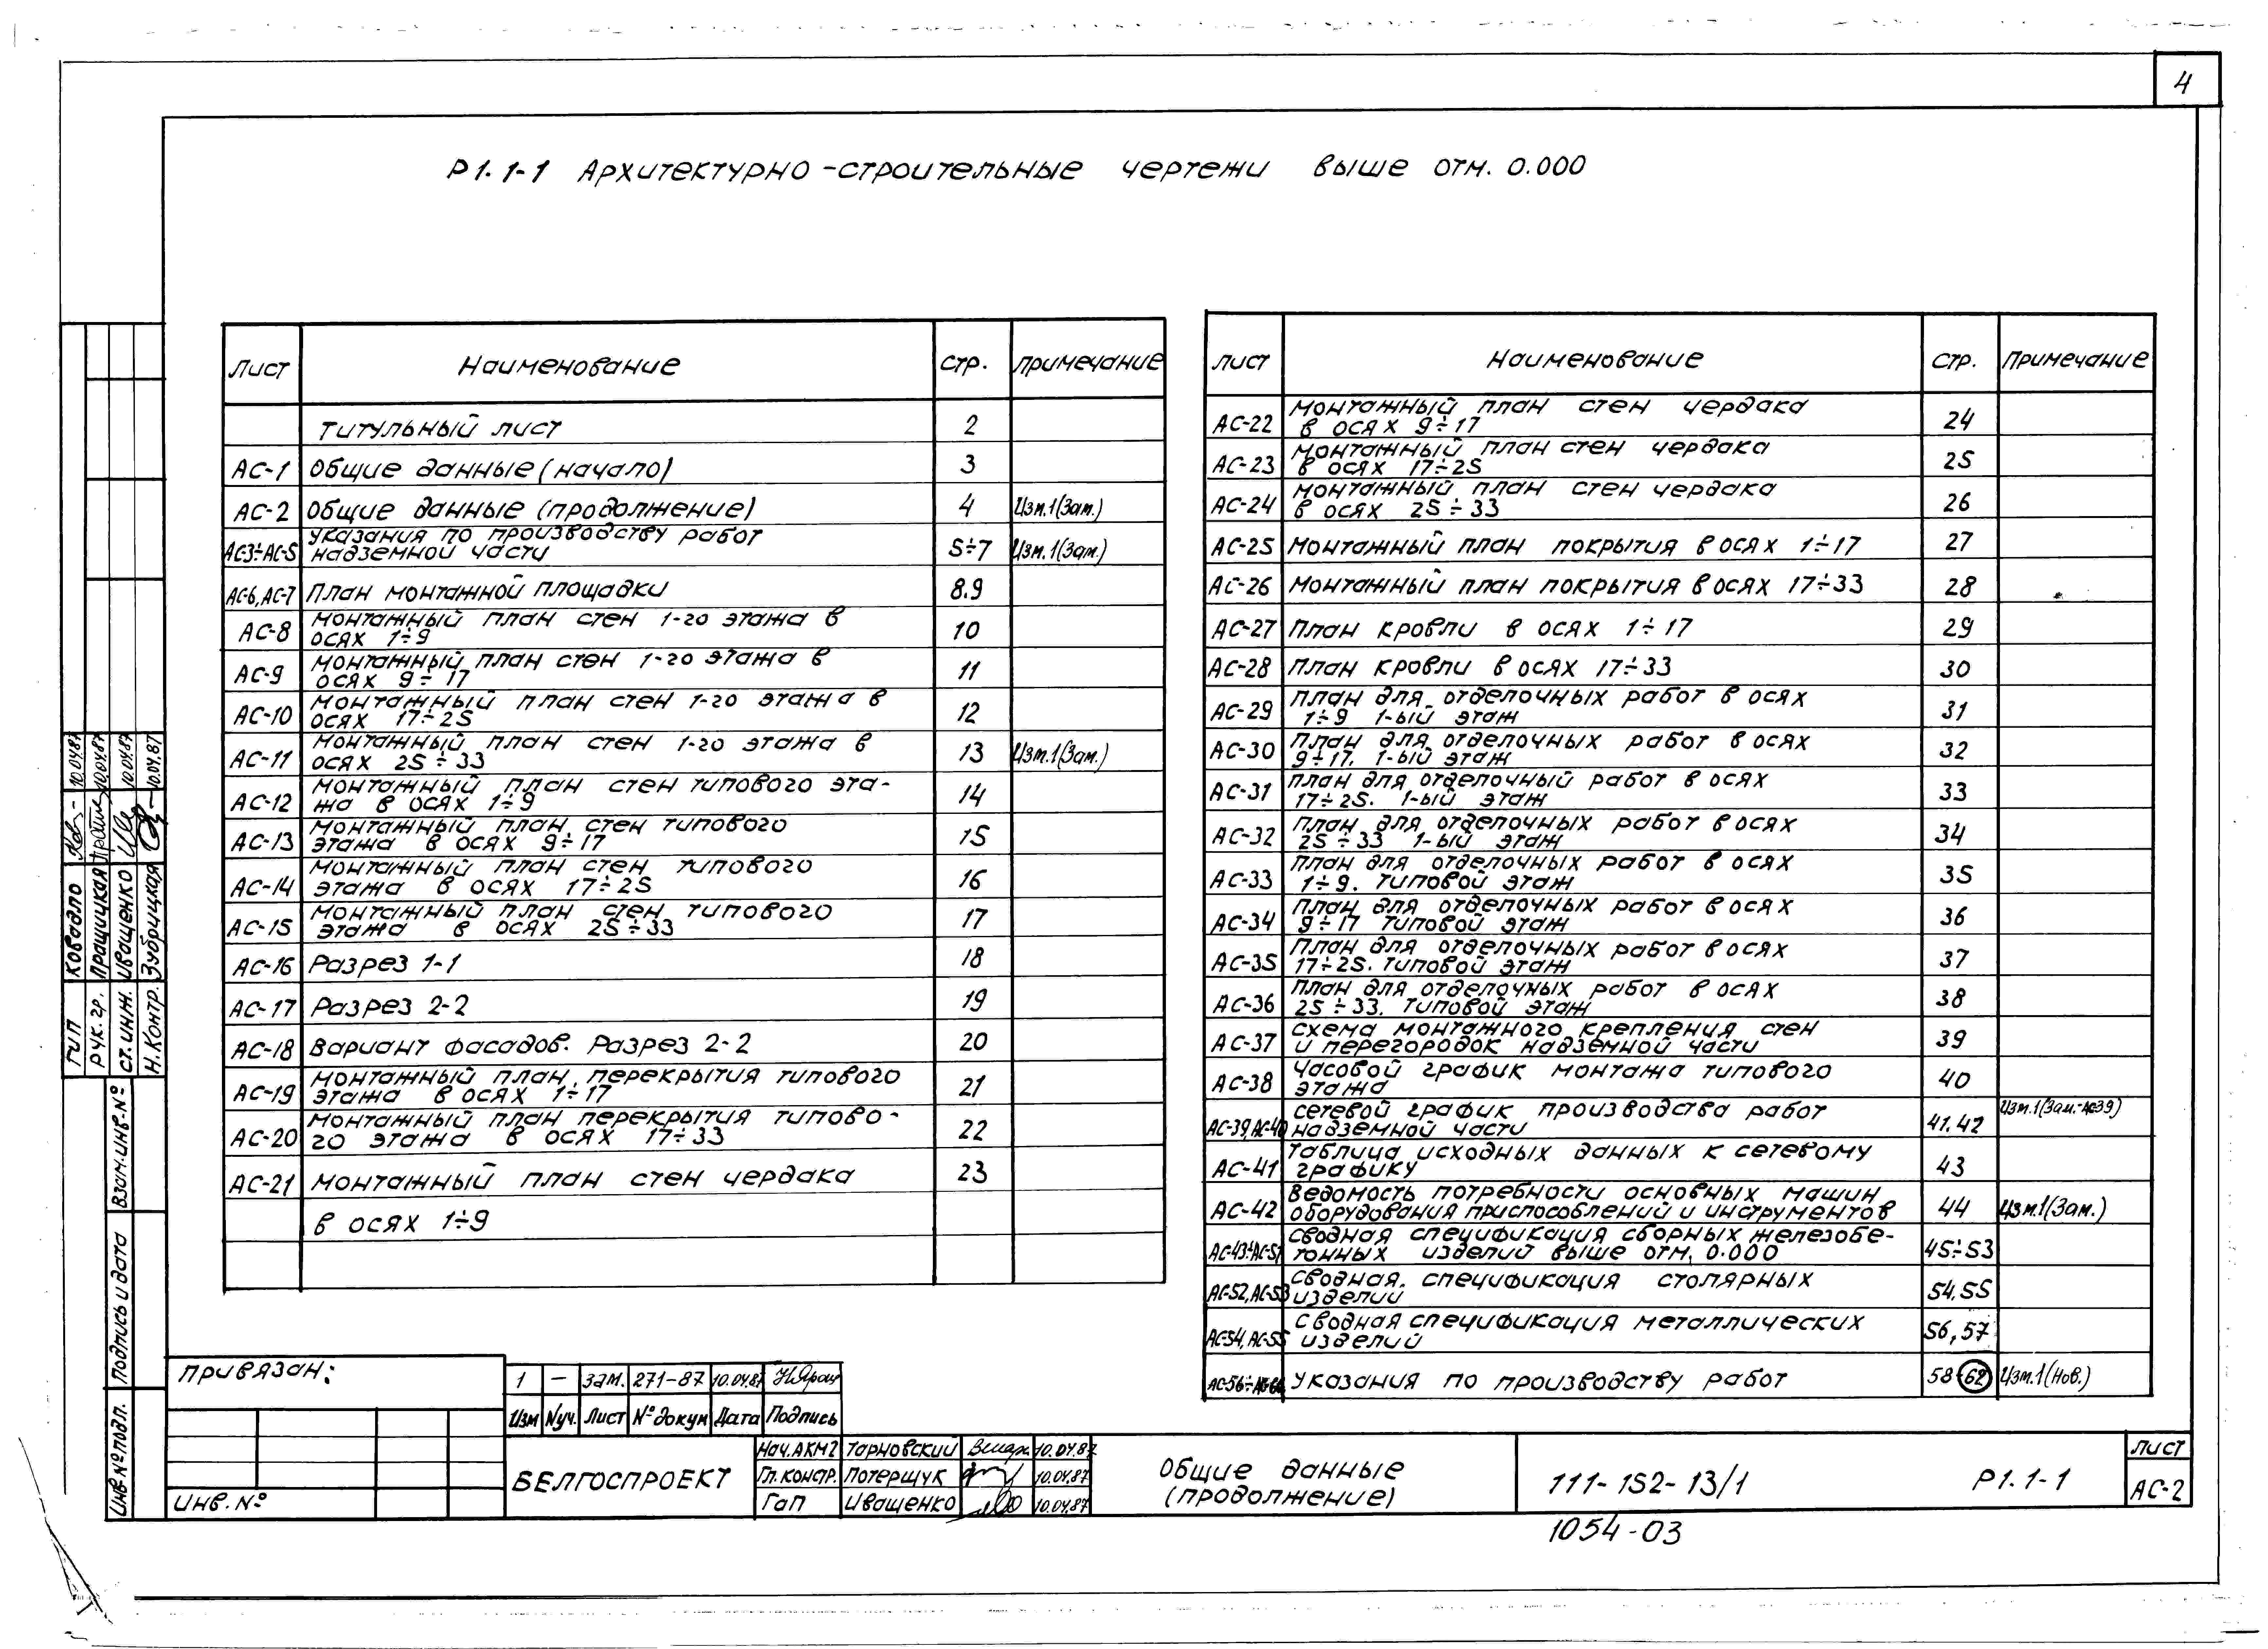 4
Р1.1-1 Архитектурно-строительные чертежи выше отм. 0.000
Лист Наименование Стр. Примечание
Титульный лист 2
АС-1 Общие данные (начало) 3
АС-2 Общие данные (продолжение) 4 Изм.1(Зам.)
АС-3÷АС-5 Указания по производству работ
надземной части 5÷7 Изм.1(Зам.)
АС-6, АС-7 План монтажной площадки 8.9
АС-8 Монтажный план стен 1-го этажа в
осях 1÷9 10
АС-9 Монтажный план стен 1-го этажа в
осях 9÷17 11
АС-10 Монтажный план стен 1-го этажа в
осях 17÷25 12
АС-11 Монтажный план стен 1-го этажа в
осях 25÷33 13 Изм.1(Зам.)
АС-12 Монтажный план стен типового эта-
жа в осях 1÷9 14
АС-13 Монтажный план стен типового
этажа в осях 9÷17 15
АС-14 Монтажный план стен типового
этажа в осях 17÷25 16
АС-15 Монтажный план стен типового
этажа в осях 25÷33 17
АС-16 Разрез 1-1 18
АС-17 Разрез 2-2 19
АС-18 Вариант фасадов. Разрез 2-2 20
АС-19 Монтажный план перекрытия типового
этажа в осях 1÷17 21
АС-20 Монтажный план перекрытия типово-
го этажа в осях 17÷33 22
АС-21 Монтажный план стен чердака 23
в осях 1÷9
Лист Наименование Стр. Примечание
АС-22 Монтажный план стен чердака
в осях 9÷17 24
АС-23 Монтажный план стен чердака
в осях 17÷25 25
АС-24 Монтажный план стен чердака
в осях 25÷33 26
АС-25 Монтажный план покрытия в осях 1÷17 27
АС-26 Монтажный план покрытия в осях 17÷33 28
АС-27 План кровли в осях 1÷17 29
АС-28 План кровли в осях 17÷33 30
АС-29 План для отделочных работ в осях
1÷9 1-ый этаж 31
АС-30 План для отделочных работ в осях
9÷17. 1-ый этаж 32
АС-31 План для отделочный работ в осях
17÷25. 1-ый этаж 33
АС-32 План для отделочных работ в осях
25÷33 1-ый этаж 34
АС-33 План для отделочных работ в осях
1÷9. Типовой этаж 35
АС-34 План для отделочных работ в осях
9÷17 Типовой этаж 36
АС-35 План для отделочных работ в осях
17÷25. Типовой этаж 37
АС-36 План для отделочных работ в осях
25÷33. Типовой этаж 38
АС-37 Схема монтажного крепления стен
и перегородок надземной части 39
АС-38 Часовой график монтажа типового
этажа 40
АС-39, АС-40 Сетевой график производства работ
надземной части 41.42 Изм.1(Зам.-АС39)
АС-41 Таблица исходных данных к сетевому
графику 43
АС-42 Ведомость потребности основных машин
оборудования приспособлений и инструментов 44 Изм.1(Зам.)
АС-43÷АС-51 Сводная спецификация сборных железобе-
тонных изделий выше отм. 0.000 45÷53
АС-52, АС-53 Сводная спецификация столярных
изделий 54.55
АС-54, АС-55 Сводная спецификация металлических
изделий 56,57
Указания по производству работ 58÷62 Изм.1(Нов.)
ГИП Ковадло 10.04.87
Рук. гр. Пращицкая 10.04.87
Ст. инж. Иващенко 10.04.87
Н. Контр. Зубрицкая 10.04.87
Взам. инв. №
Подпись и дата
Инв № подл.
Привязан:
Инв. №
1 – Зам. 271-87 10.04.87
Изм Nуч. Лист № докум Дата Подпись
БЕЛГОСПРОЕКТ
Нач. АКМ2 Тарновский 10.04.87
Гл. констр. Потерщук 10.04.87
Гап Иващенко 10.04.87
Общие данные
(продолжение)
111-152-13/1
Р1.1-1
Лист
АС-2
1054-03